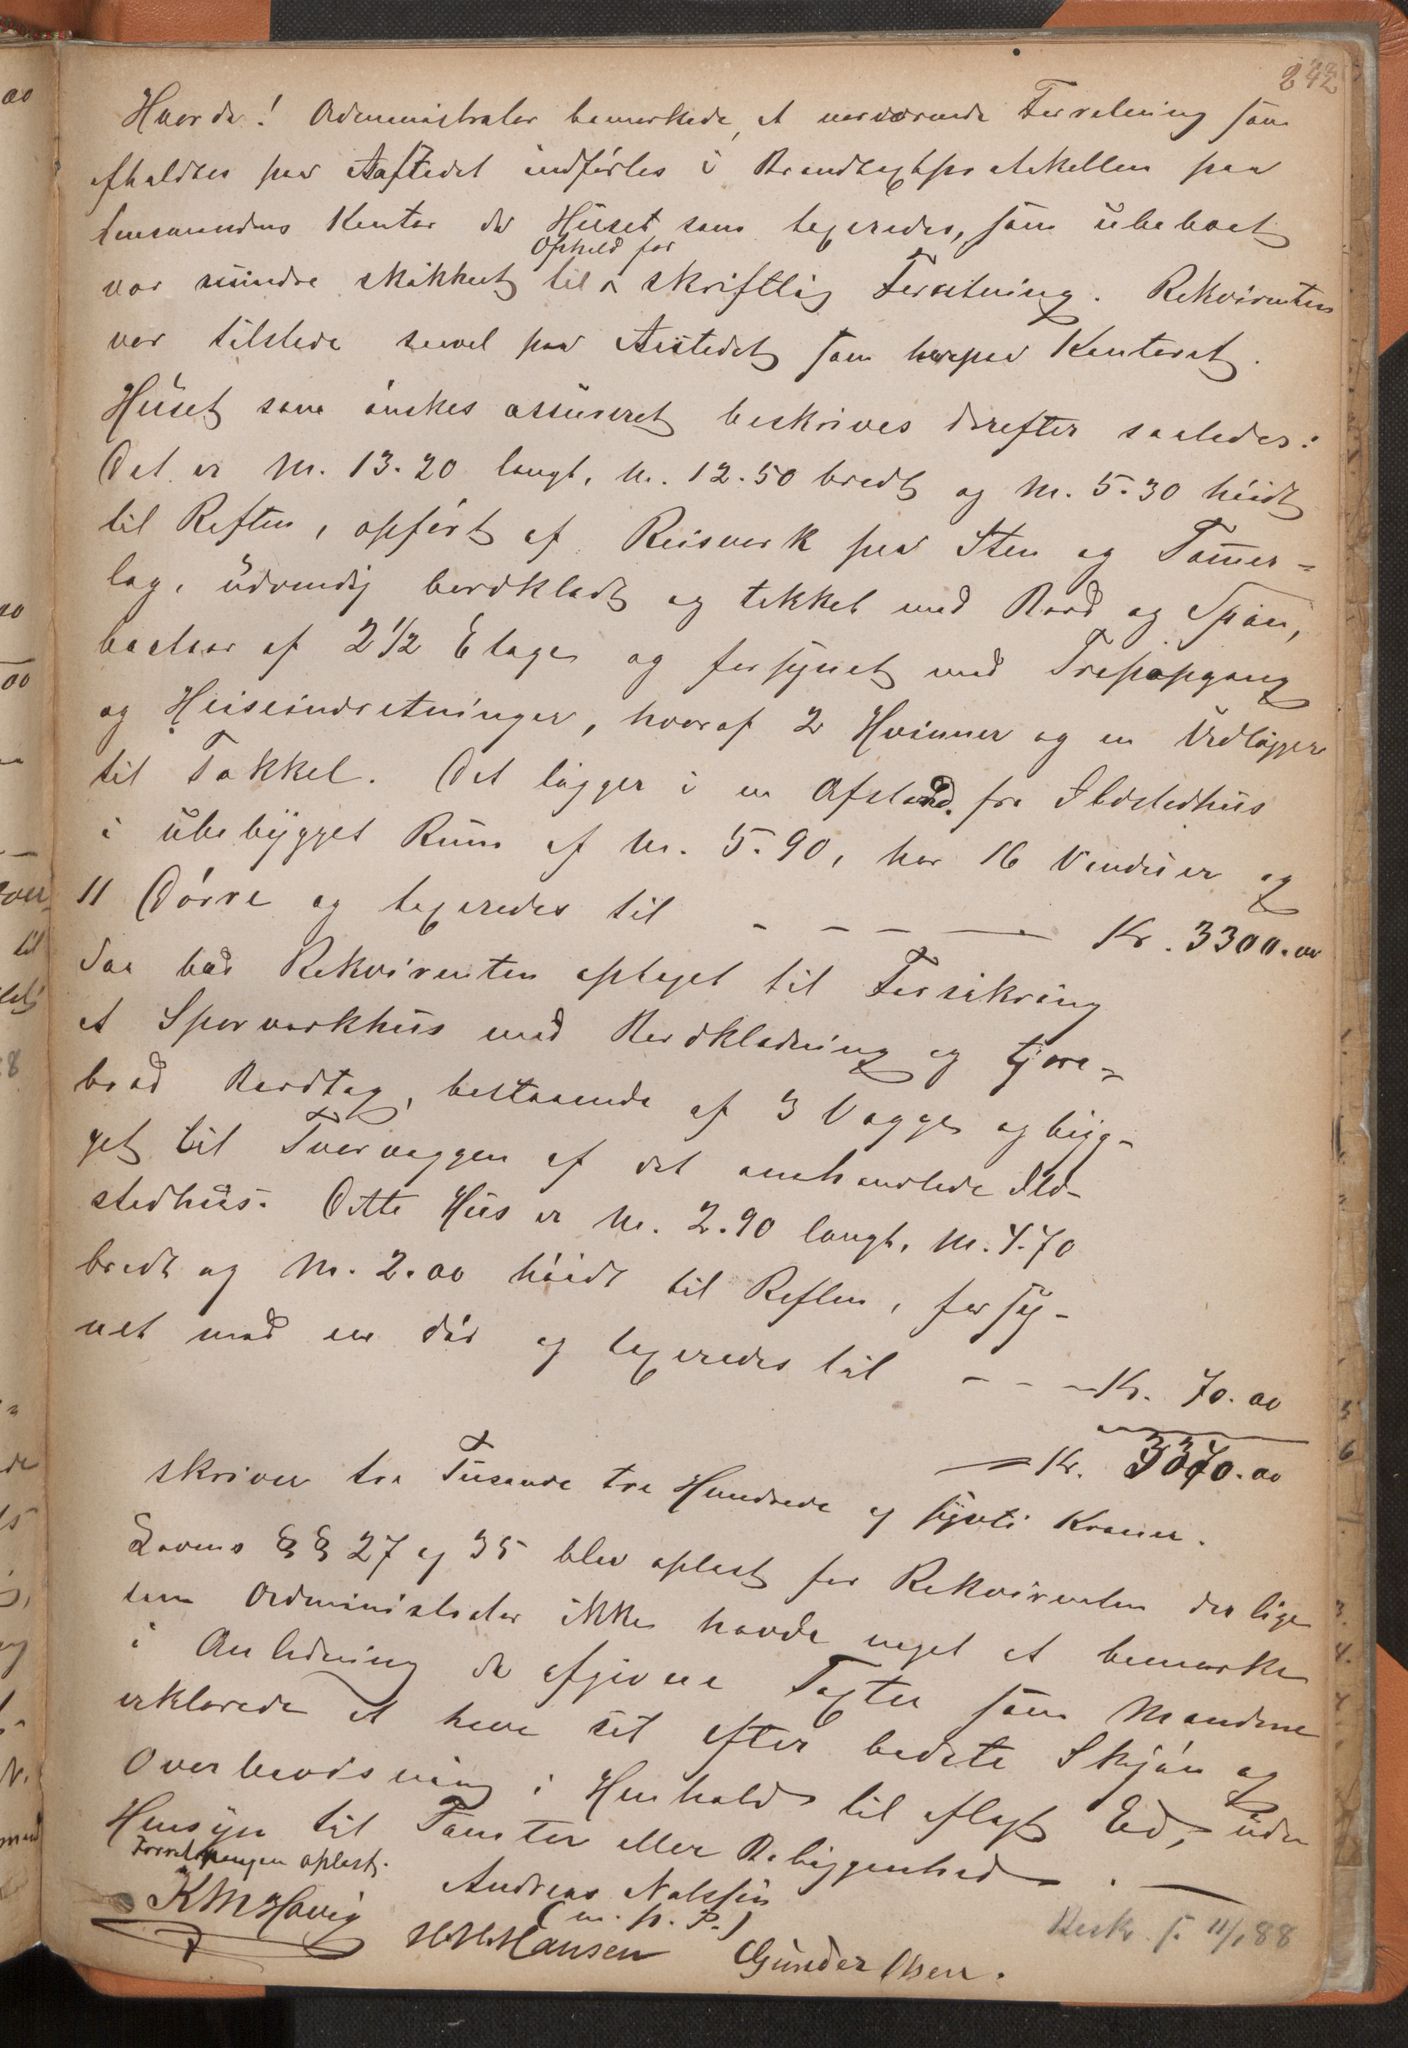 242
Hvorda! Administrator bemærkede, at nærværende Forretning som
afholdtes paa Aastedet indførtes i Brandtaxtprotokollen paa
Lensmandens Kontor da Huset som taxeredes, som ubeboet
Ophold for
var mindre skikket til ^ skriftlig Forretning. Rekvirenten
var tilstede saavel paa Aastedet som herpaa Kontoret.
Huset som ønskes assureret beskrives derefter saaledes:
Det er M. 13.20 langt, M. 12.50 bredt og M. 5.30 høidt
til Raften, opført af Reisverk paa Sten og Tømmer=
lag, udvendig bordklædt og tækket med Bord og Spån,
bestaar af 2 1/2 Etage og forsynet med Trapopgang
og Heiseindretninger, hvoraf 2 Hvinner og en Udligger
til Takkel. Det ligger i en Afstand fra Ildstedhus
i ubebygget Rum af M. 5.90, har 16 Vinduer og
11 Dørre og taxeredes til - - - — Kr. 3300.00
Saa bad Rekvirenten optaget til Forsikring
et Sporverkhus med Bordklædning og tjære=
bræd Bordtag, bestaaende af 3 Vægge og byg-
get til Tvervæggen af det omhandlede Ild-
stedhus. Dette Hus er M. 2.90 langt, M. 4.70
bredt og M. 2.00 høidt til Raften, forsy-
net med en Dør og taxeredes til - - - Kr. 70.00
= Kr. 3370.00
skriver tre Tusende tre Hundrede og sytti Kroner.
Lovens §§ 27 og 35 blev oplæst for Rekvirenten der lige
som Administrator ikke havde noget at bemærke
i Anledning de afgivne Taxter som Mændene
erklærede at have sat efter bedste Skjøn og
Overbevisning i Henhold til aflagt Ed, uden
Hensyn til Tomter eller Bebyggenhed. —
Forretningen oplæst.
K M Havig Andreas Nilssen
(m. p. P.)
H. M. Hansen Gunder Olsen.
Besk. s. 11/1 88